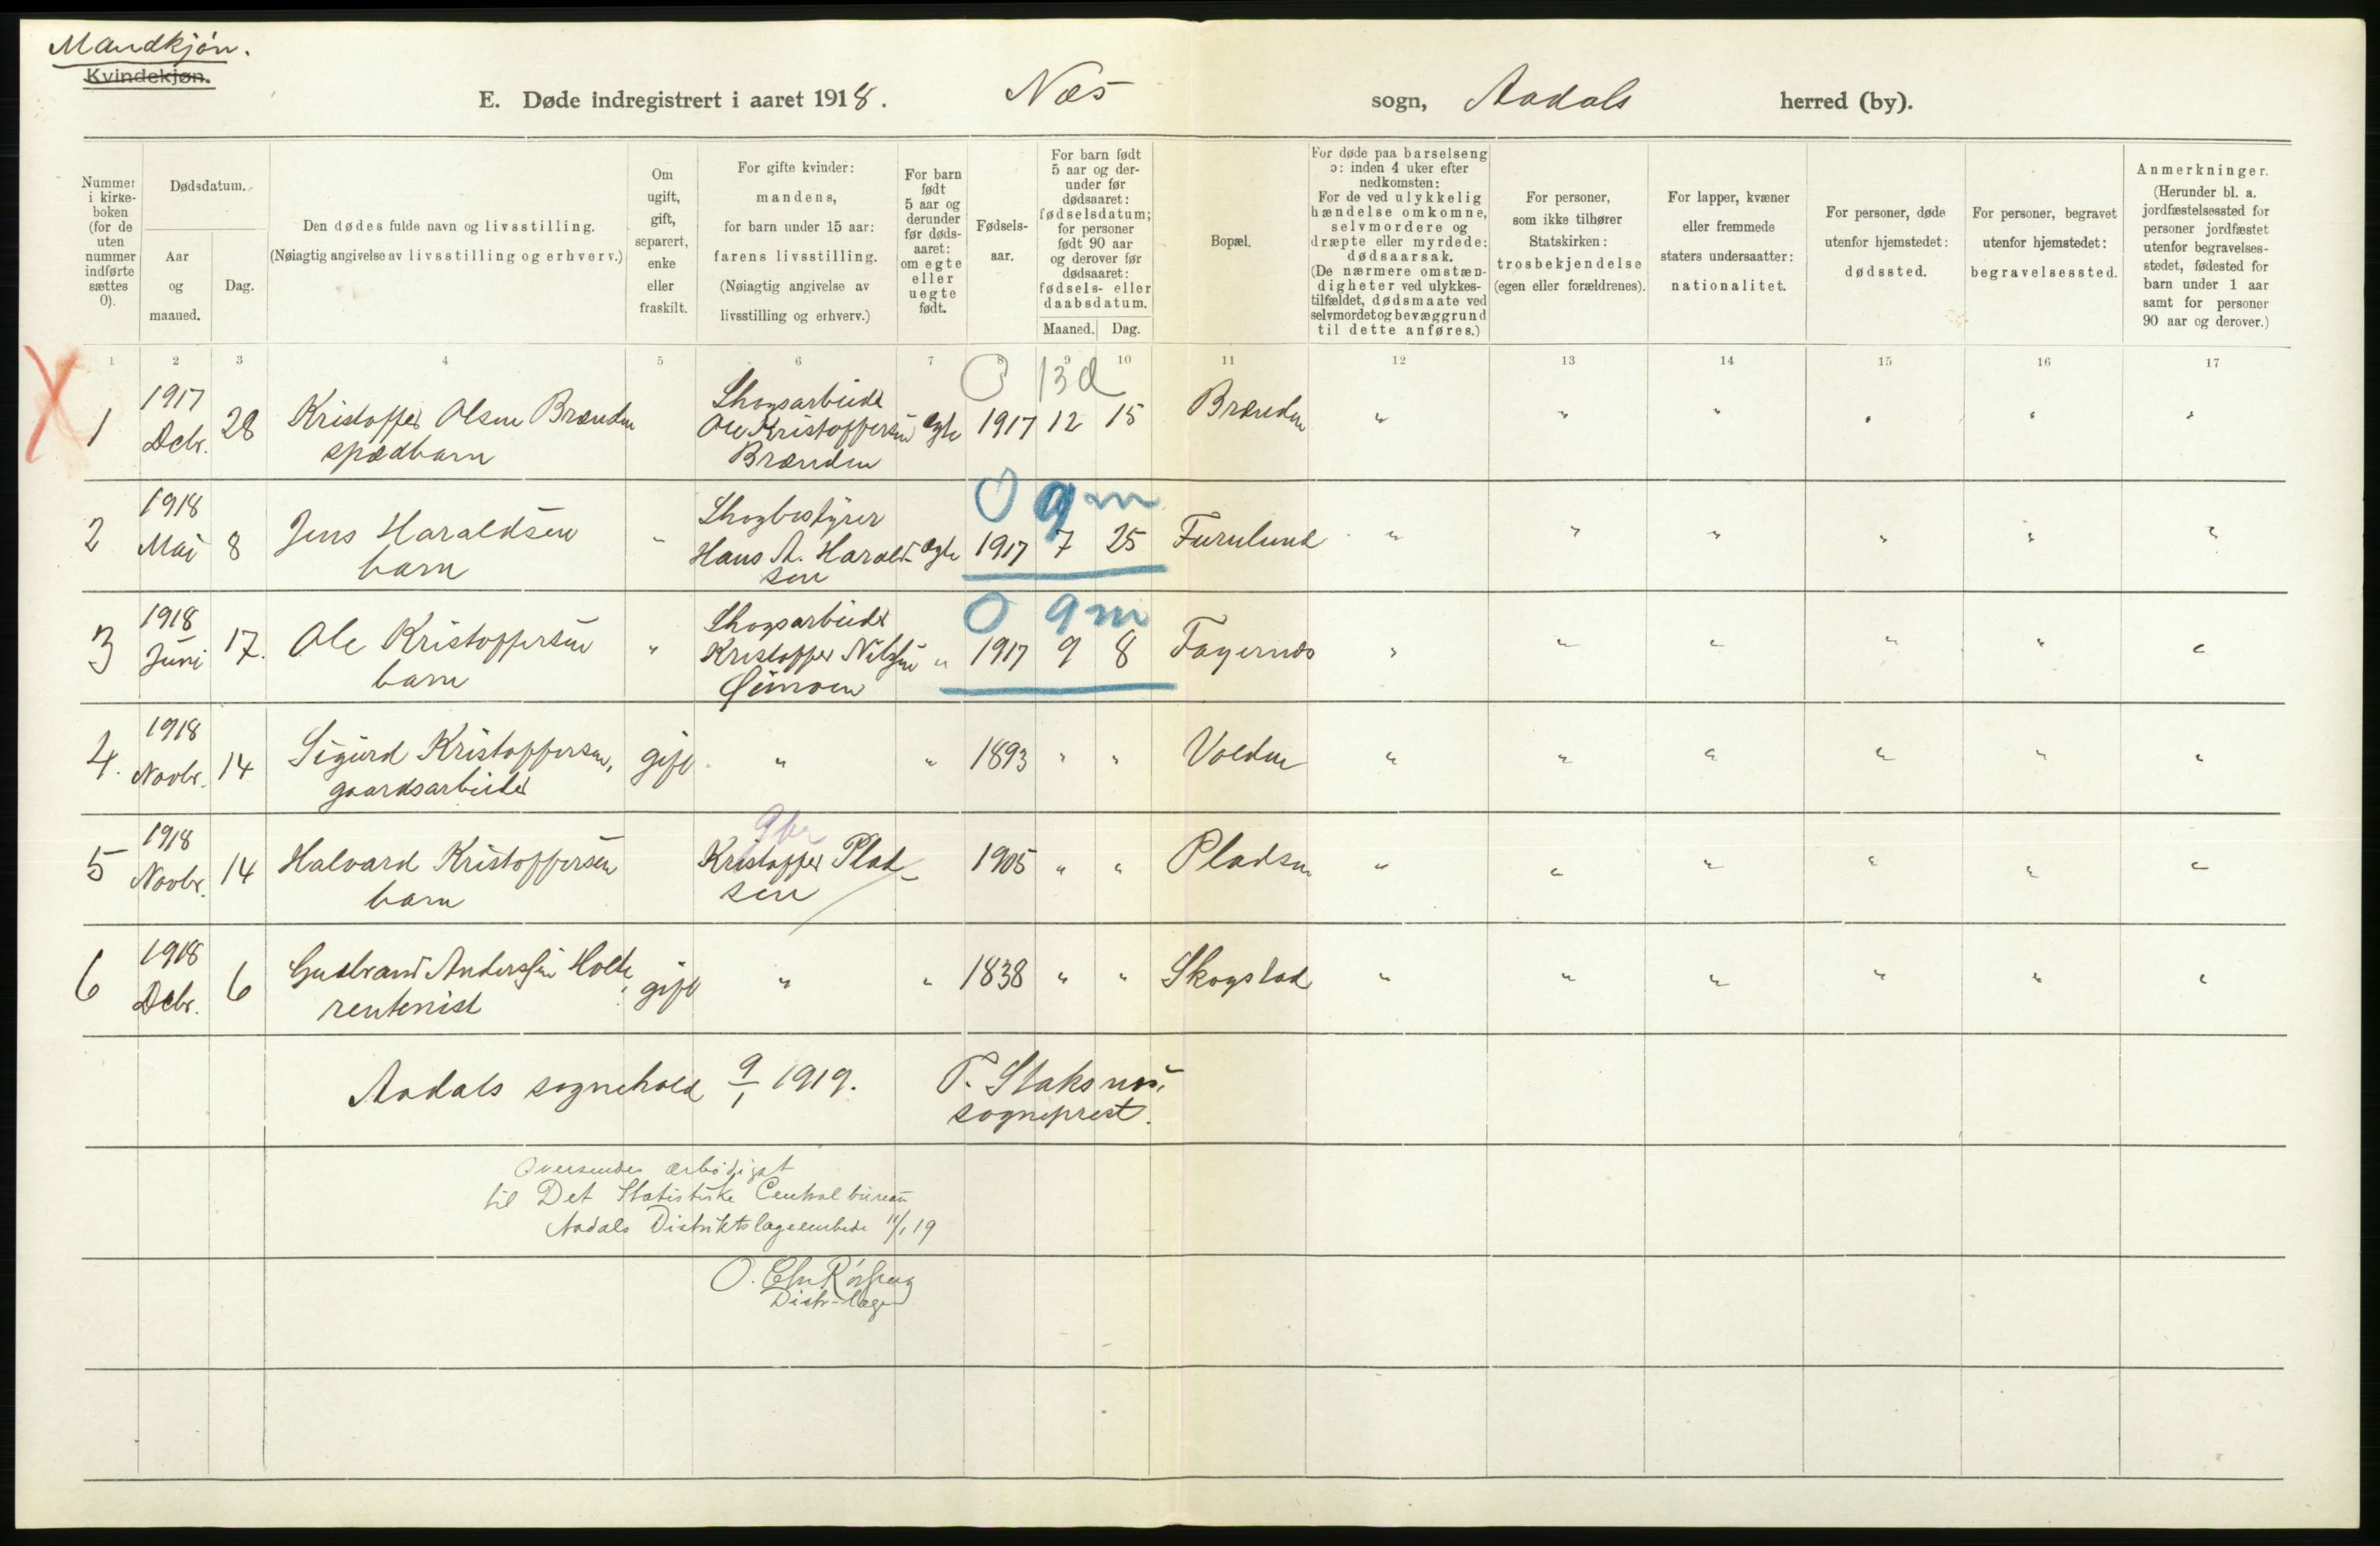 Mandkjøn.
Kvindekjøn.
E. Døde indregistrert i aaret 1918. Næs sogn, Aadals herred (by).
Nummer i kirkeboken (for de uten nummer indførte sættes 0).
Dødsdatum.
Aar og maaned.
Dag.
Den dødes fulde navn og livsstilling.
(Nøiagtig angivelse av livsstilling og erhverv.)
Om ugift, gift, separert, enke eller fraskilt.
For gifte kvinder: mandens, for barn under 15 aar: farens livsstilling. (Nøiagtig angivelse av livsstilling og erhverv.)
For barn født 5 aar og derunder før dødsaaret: om egte eller uegte født.
Fødselsaar.
For barn født 5 aar og derunder før dødsaaret: fødselsdatum; for personer født 90 aar og derover før dødsaaret: fødsels- eller daabsdatum.
Maaned. Dag.
Bopæl.
For døde paa barselseng ɔ: inden 4 uker efter nedkomsten: For de ved ulykkelig hændelse omkomne, selvmordere og dræpte eller myrdede: dødsaarsak. (De nærmere omstændigheter ved ulykkestilfældet, dødsmaate ved selvmordet og bevæggrund til dette anføres.)
For personer, som ikke tilhører Statskirken: trosbekjendelse (egen eller forældrenes).
For lapper, kvæner eller fremmede staters undersaatter: nationalitet.
For personer, døde utenfor hjemstedet: dødssted.
For personer, begravet utenfor hjemstedet: begravelsessted.
Anmerkninger. (Herunder bl. a. jordfæstelsessted for personer jordfæstet utenfor begravelsesstedet, fødested for barn under 1 aar samt for personer 90 aar og derover.)
1 2 3 4 5 6 7 8 9 10 11 12 13 14 15 16 17
0 13 d
1 1917 Debr. 28 Kristoffer Olsen Brænden spædbarn Skogsarbeider Ole Kristoffersen Brænden egte 1917 12 15 Brænden " " " " " "
0 9 m
2 1918 Mai 8 Jens Haraldsen barn " Skogbestyrer Hans A. Haraldsen egte 1917 7 25 Furulund " " " " " "
0 9 m
3 1918 Juni 17. Ole Kristoffersen barn " Skogsarbeider Kristoffer Nilsen Øimoen " 1917 9 8 Fagernæs " " " " " "
4. 1918 Novbr. 14 Sigurd Kristoffersen, gaardsarbeider gift " " 1893 " " Volden " " " " " "
5 1918 Novbr. 14 Halvard Kristoffersen barn Kristoffer Pladsen 1905 " " Pladsen " " " " " "
6 1918 Debr. 6 Gudbrand Anderssen Holte, rentenist gift " " 1838 " " Skogstad " " " " " "
Aadals sognekald 9/1 1919. T. Staksnæs, sogneprest.
Oversendes ærbødigst
til Det Statistiske Centralbureau
Aadals Distriktslægeembede 11/1 19
Distr-læge